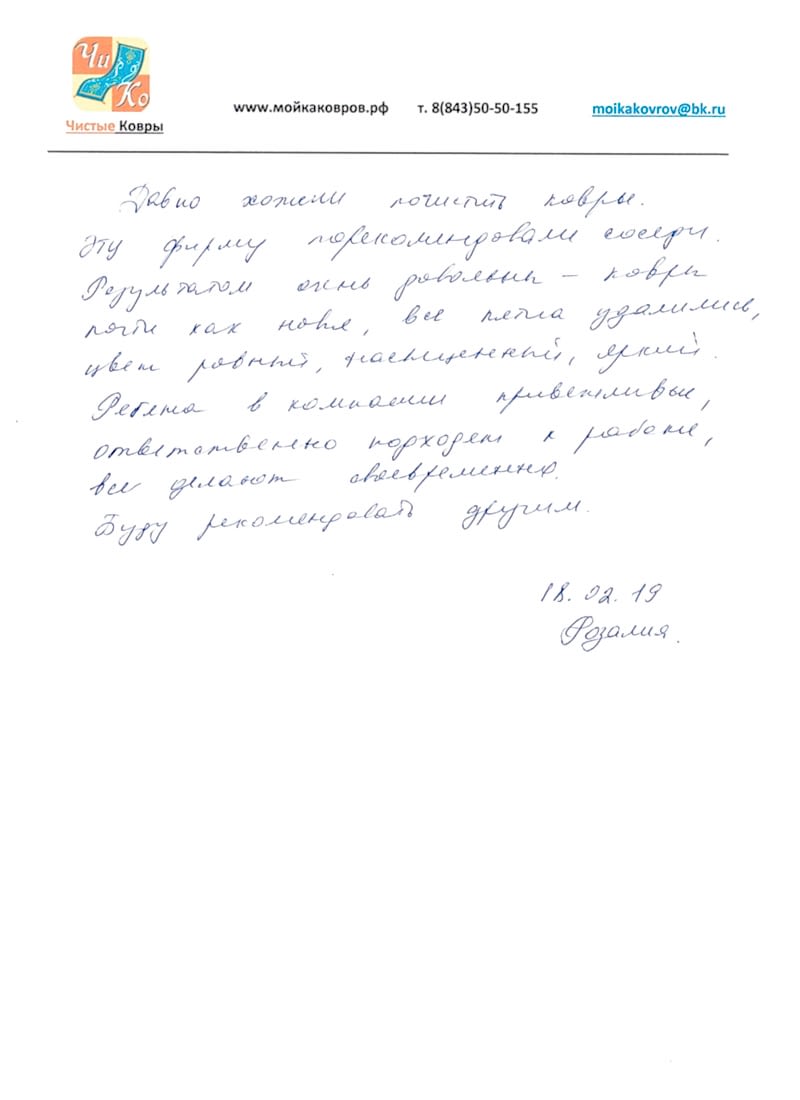 Чи
Ко
Чистые Ковры
www.мойкаковров.рф т. 8(843)50-50-155 moikakovrov@bk.ru
Давно хотели почистить ковры.
Эту фирму порекомендовали соседи.
Результатом очень довольны – ковры
почти как новые, все пятна удалились,
цвет ровный, насыщенный, яркий.
Ребята в компании приветливые,
ответственно подходят к работе,
все делают своевременно.
Буду рекомендовать другим.
18.02.19
Розалия.